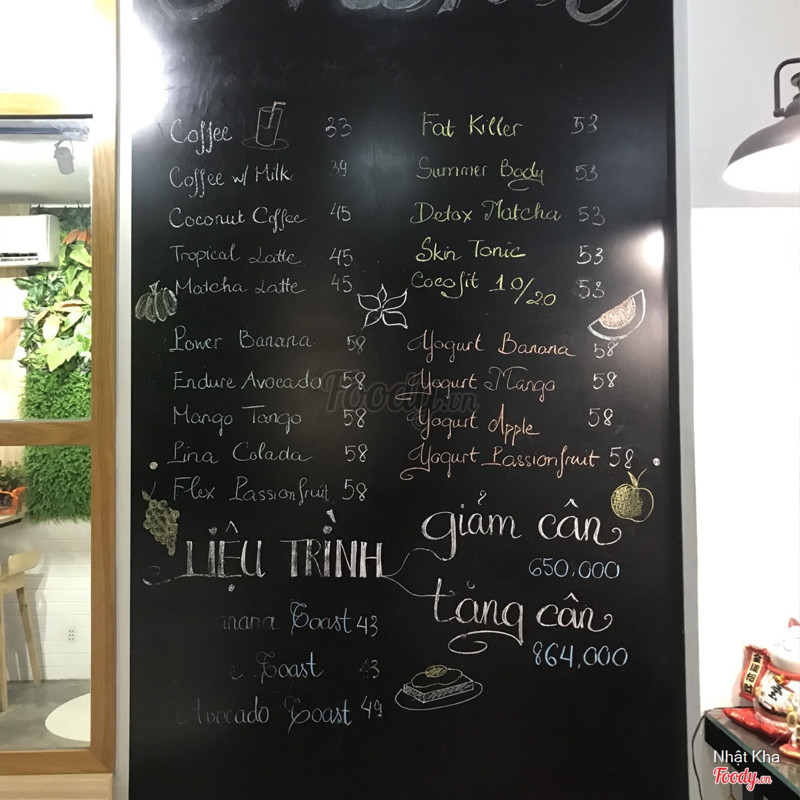 Coffee 33
Coffee w/ Milk 39
Coconut Coffee 45
Tropical Latte 45
Matcha Latte 45
Power Banana 58
Endure Avocado 58
Mango Tango 58
Pina Colada 58
Flex Passionfruit 58
Fat Killer 53
Summer Body 53
Detox Matcha 53
Skin Tonic 53
Cocofit 10/20 53
Yogurt Banana 58
Yogurt Mango 58
Yogurt Apple 58
Yogurt Passionfruit 58
LIỆU TRÌNH
giảm cân
650,000
tăng cân
864,000
Toast 43
Toast 43
Avocado Toast 49
Foody.vn
Nhật Kha
Foody.vn